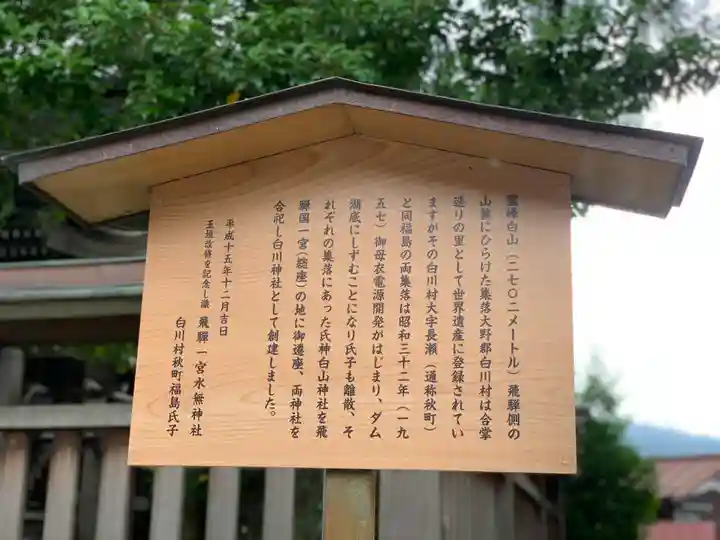 霊峰白山(二七〇二メートル)飛騨側の
山麓にひらけた集落大野郡白川村は合掌
造りの里として世界遺産に登録されてい
ますがその白川村大字長瀬(通称秋町)
と同福島の両集落は昭和三十二年(一九
五七)御母衣電源開発がはじまり、ダム
湖底にしずむことになり氏子も離散、そ
れぞれの集落にあった氏神白山神社を飛
騨国一宮(総座)の地に御遷座、両神社を
合祀し白川神社として創建しました。
平成十五年十二月吉日
玉垣改修を記念し識
飛騨一宮水無神社
白川村秋町福島氏子